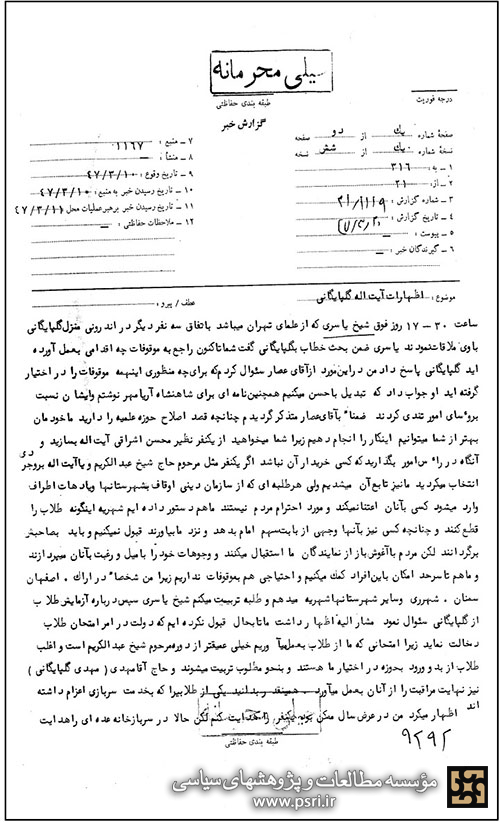 خیلی محرمانه
طبقه بندی حفاظتی
درجه فوریت
گزارش خبر
صفحه شماره یك از دو صفحه
نسخه شماره یك از شش نسخه
۱ ـ به : ۳۱۶
۲ ـ از : ۲۱
۳ ـ شماره گزارش :
۴ ـ تاریخ گزارش :
۵ ـ پیوست : ـ
۶ ـ گیرندگان خبر : ـ
۷ ـ منبع : ۱۱۶۷
۸ ـ منشأ : ـ
۹ ـ تاریخ وقوع : ۴۷/۳/۱۰
۱۰ ـ تاریخ رسیدن خبر به منبع : ۴۷/۳/۱۰
۱۱ ـ تاریخ رسیدن خبر برهبرعملیات محل : ۴۷/۳/۱۱
۱۲ ـ ملاحظات حفاظتی : ـ
موضوع : اظهارات آیت اله گلپایگانی عطف / پیرو :
ساعت ۳۰ ـ ۱۷ روز فوق شیخ یاسری که ازعلمای تهران میباشد باتفاق سه نفر دیگر در اندرونی منزل گلپایگانی
باوی ملاقات نمودند یاسری ضمن بحث خطاب بگلپایگانی گفت شما تاکنون راجع به موقوفات چه اقدامی بعمل آورده
اید گلپایگانی پاسخ داد من در این مورد ازآقای عصار سئوال کردم که برای چه منظوری اینهمه موقوفات را در اختیار
گرفته اید او جواب داد که تبدیل باحسن میکنم همچنین نامه ای برای شاهنشاه آریامهر نوشتم وایشان نسبت
بروسای امور تندی کردند ضمناً بآقای عصار متذکر گردیدم چنانچه قصد اصلاح حوزه علمیه را دارید ما خودمان
بهتر از شما میتوانیم اینکار را انجام دهیم زیرا شما میخواهید از یکنفر نظیر محسن اشراقی آیت اله بسازید و
آنگاه در رأس امور بگذارید که کسی خریدار آن نباشد اگر یکنفر مثل مرحوم حاج شیخ عبدالکریم و یا آیت اله بروجردی
انتخاب میکردید ما نیز تابع آن میشدیم ولی هر طلبه ای که از سازمان دینی اوقاف بشهرستانها و یا دهات اطراف
وارد میشود کسی بآنان اعتنا نمیکند و مورد احترام مردم نیستند ماهم دستور داده ایم شهریه اینگونه طلاب را
قطع کنند و چنانچه کسی نیز بآنها وجهی از بابت سهم امام بدهد و نزد ما بیاورند قبول نمیکنیم و باید بصاحبش
برگردانند لکن مردم باآغوش باز از نمایندگان ما استقبال میکنند و وجوهات خود را با میل و رغبت بآنان میپردازند
و ماهم تا سرحد امکان باین افراد کمك میکنیم و احتیاجی هم بموقوفات نداریم زیرا من شخصاً در اراك . اصفهان
سمنان . شهرری وسایر شهرستانها شهریه میدهم و طلبه تربیت میکنم شیخ یاسری سپس درباره آزمایش طلاب
از گلپایگانی سئوال نمود مشارالیه اظهار داشت ما تابحال قبول نکرده ایم که دولت در امر امتحان طلاب
دخالت نماید زیرا امتحانی که ما از طلاب بعمل میآوریم خیلی عمیقتر از دوره مرحوم شیخ عبدالکریم است و اغلب
طلاب از بدو ورود بحوزه در اختیار ما هستند و بنحو مطلوب تربیت میشوند و حاج آقا مهدی ( مهدی گلپایگانی )
نیز نهایت مراقبت را از آنان بعمل میآورد . همینقدر بدانید یکی از طلابیرا که بخدمت سربازی اعزام داشته اند
اظهار میکرد من در عرض سال ممکن بود یکنفر را هدایت کنم لکن حالا در سربازخانه عده ای را هدایت
طبقه بندی حفاظتی
۹۲۹۲
مؤسسه مطالعات و پژوهشهای سیاسی
www.psri.ir